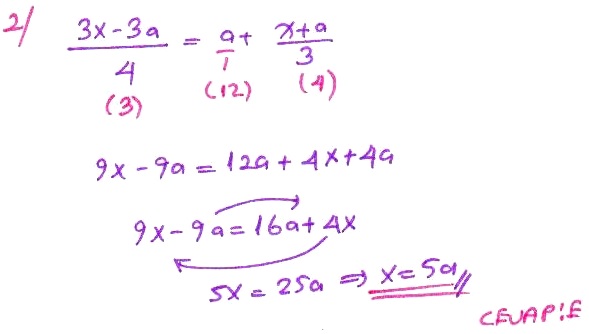 2/ (3x-3a)/4 = a/1 + (x+a)/3
(3) (12) (4)
9x-9a=12a+4x+4a
9x-9a=16a+4x
5x=25a ⇒ x=5a//
CEVAP:E